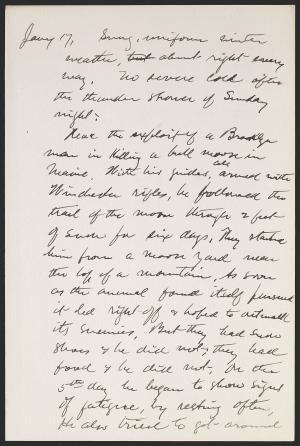 Jany 17, Snug, uniform winter
weather, but about right every
way. No severe cold after
the thunder shower of Sunday
night.
Read the exploit of a Brooklyn
man in killing a bull moose in
Maine. With his guides, all armed with
Winchester rifles, he followed the
trail of the moose through 2 feet
of snow for six days, They started
him from a moose yard near
the top of a mountain. As soon
as the animal found itself pursued
it led right off & hoped to outwalk
its enemies, But they had snow
shoes & he did not; they had
food & he did not. On the
5th day he began to show signs
of fatigue, by resting often,
He also tried to get around